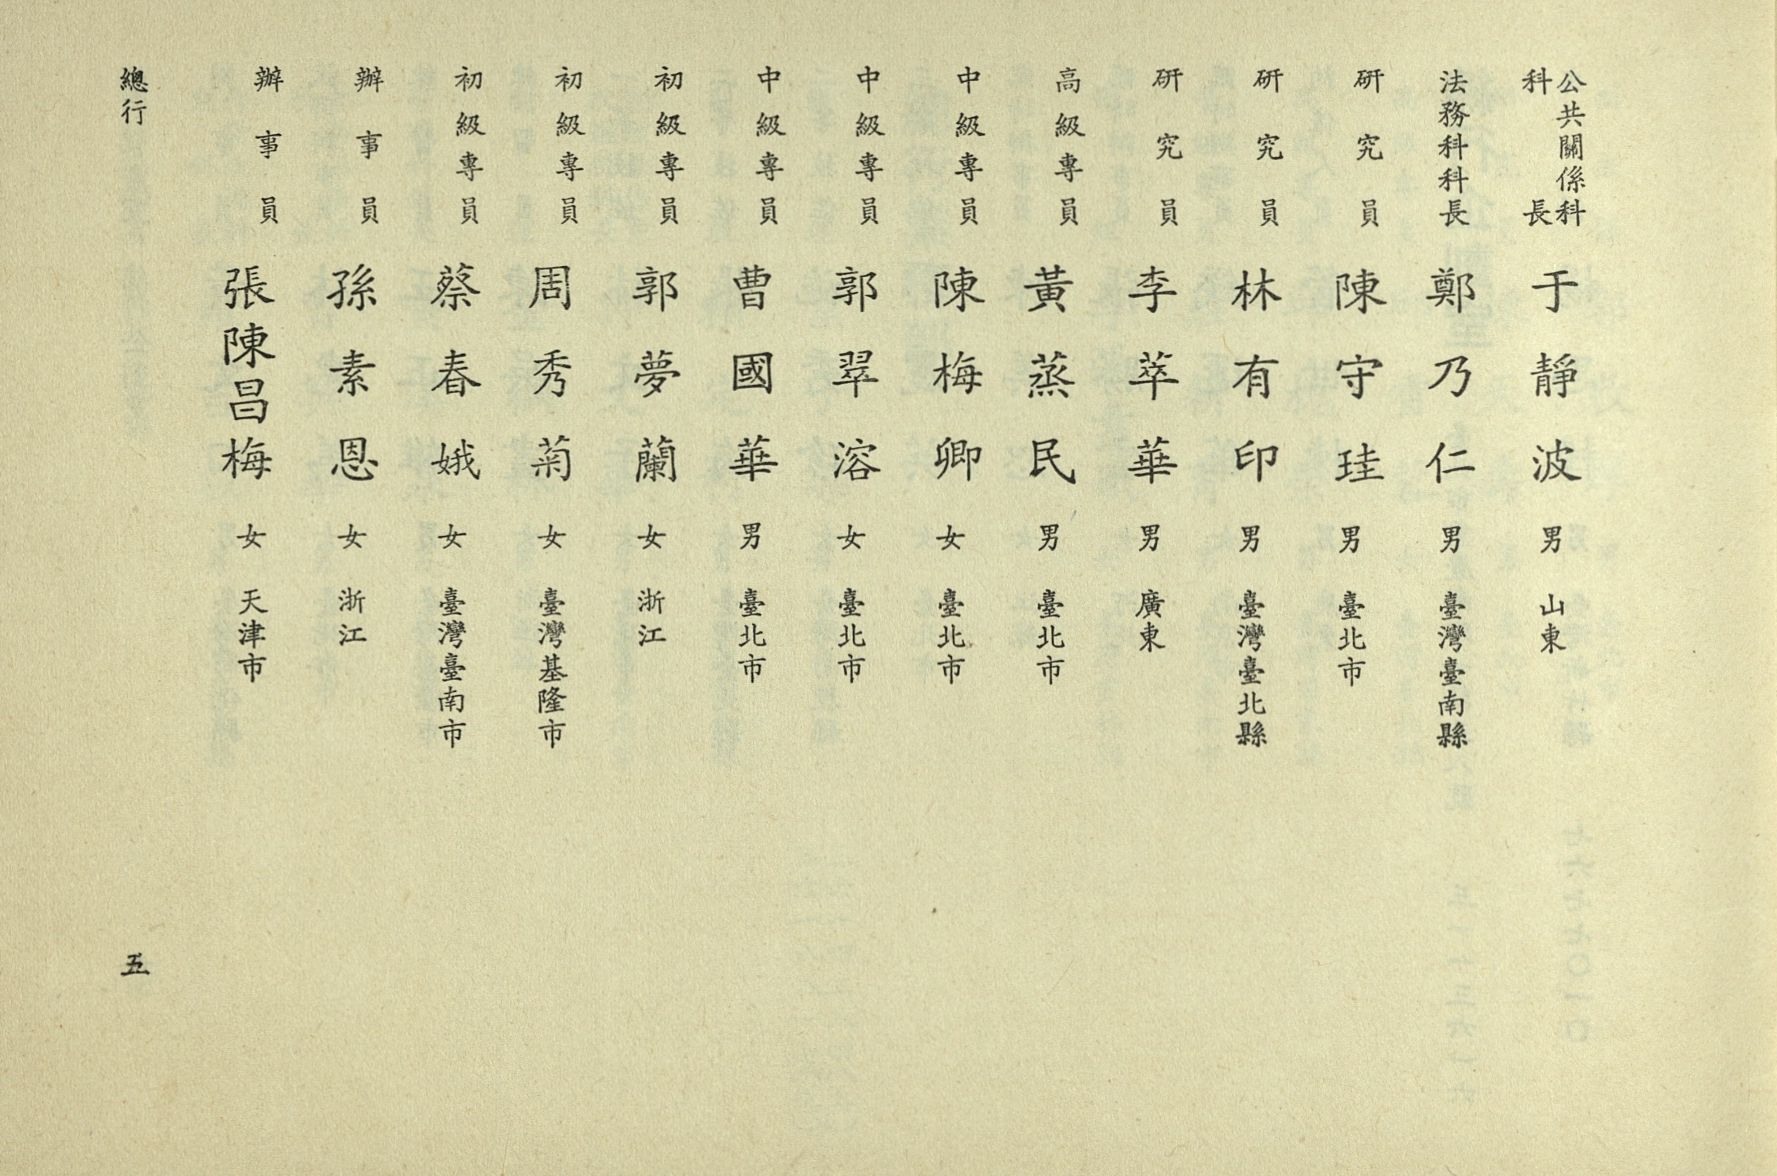 公共關係科科長 于靜波 男 山東
法務科科長 鄭乃仁 男 臺灣臺南縣
研究員 陳守珪 男 臺北市
研究員 林有印 男 臺灣臺北縣
研究員 李萃華 男 廣東
高級專員 黃蒸民 男 臺北市
中級專員 陳梅卿 女 臺北市
中級專員 郭翠溶 女 臺北市
中級專員 曹國華 男 臺北市
初級專員 郭夢蘭 女 浙江
初級專員 周秀菊 女 臺灣基隆市
初級專員 蔡春娥 女 臺灣臺南市
辦事員 孫素恩 女 浙江
辦事員 張陳昌梅 女 天津市
總行 五